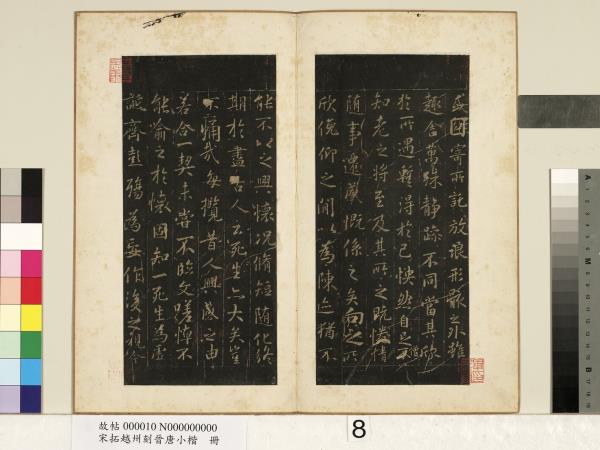 或因寄所託放浪形骸之外雖
趣舍萬殊静躁不同當其欣
於所遇蹔得於己怏然自足不
知老之將至及其所之既惓情
随事遷感慨係之矣向之所
欣俛仰之間以為陳迹猶不
能不以之興懷況脩短隨化終
期於盡古人云死生亦大矣豈
不痛哉每攬昔人興感之由
若合一契未嘗不臨文嗟悼不
能喻之於懷固知一死生為虛
誕齊彭殤為妄作後之視今
故帖 000010 N000000000
宋拓越州刻晉唐小楷 冊
8